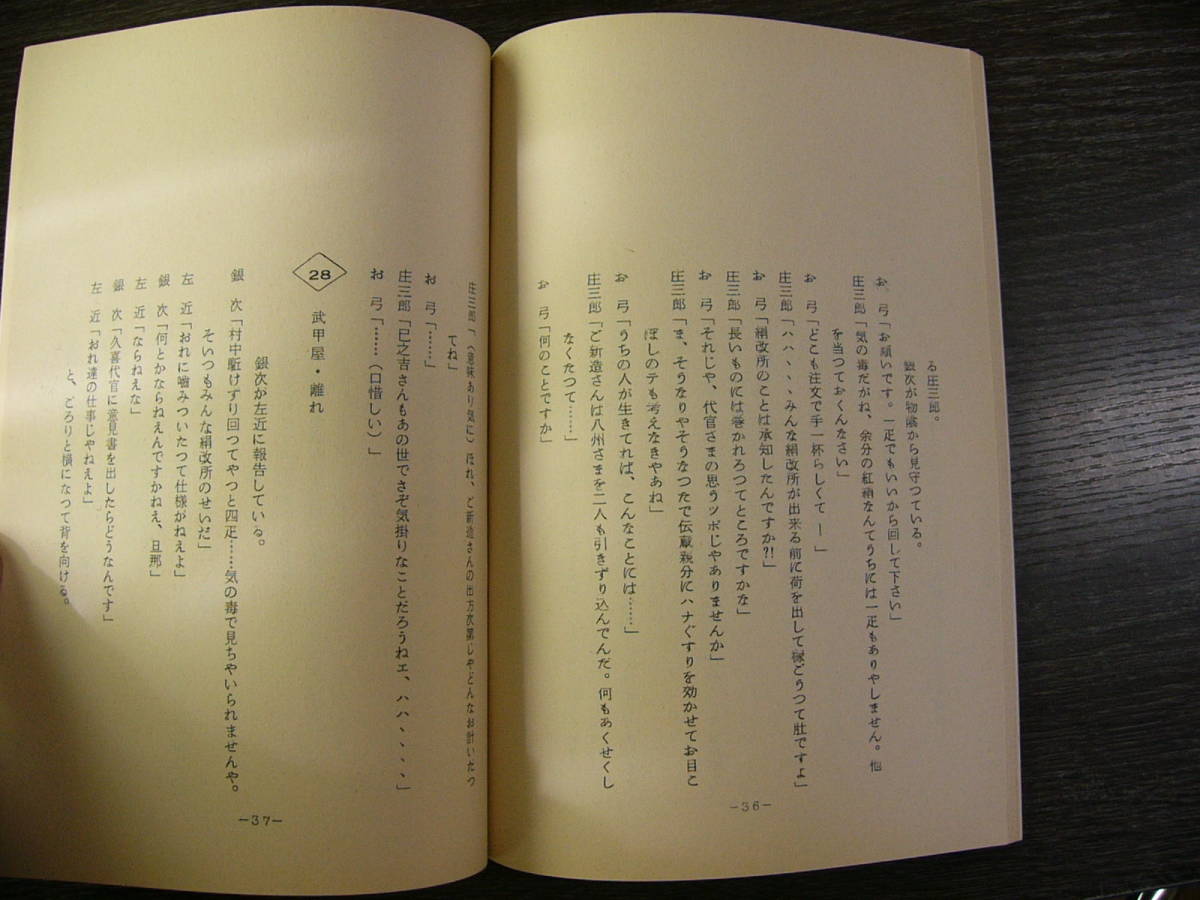 る庄三郎。
銀次が物陰から見守つている。
お　弓「お願いです。一疋でもいいから回して下さい」
庄三郎「気の毒だがね、余分の紅絹なんてうちには一疋もありやしません。他
を当つておくんなさい」
お　弓「どこも注文で手一杯らしくて―」
庄三郎「ハハ、、、みんな絹改所が出来る前に荷を出して稼ごうつて肚ですよ」
お　弓「絹改所のことは承知したんですか?!」
庄三郎「長いものには巻かれろつてところですかな」
お　弓「それじや、代官さまの思うツボじやありませんか」
庄三郎「ま、そうなりやそうなつたで伝蔵親分にハナぐすりを効かせてお目こ
ぼしのテも考えなきやあね」
お　弓「うちの人が生きてれば、こんなことには……」
庄三郎「ご新造さんは八州さまを二人も引きずり込んでんだ。何もあくせくし
なくたつて……」
お　弓「何のことですか」
−36−
庄三郎「（意味あり気に）ほれ、ご新造さんの出方次第じやどんなお計いだつ
てね」
お　弓「……」
庄三郎「巳之吉さんもあの世でさぞ気掛りなことだろうねエ、ハハ、、、、」
お　弓「……（口惜しい）」
28　武甲屋・離れ
銀次が左近に報告している。
銀　次「村中駈けずり回つてやつと四疋……気の毒で見ちやいられませんや。
そいつもみんな絹改所のせいだ」
左　近「おれに噛みついたつて仕様がねえよ」
銀　次「何とかならねえんですかねえ、旦那」
左　近「ならねえな」
銀　次「久喜代官に意見書を出したらどうなんです」
左　近「おれ達の仕事じやねえよ」
と、ごろりと横になつて背を向ける。
−37−